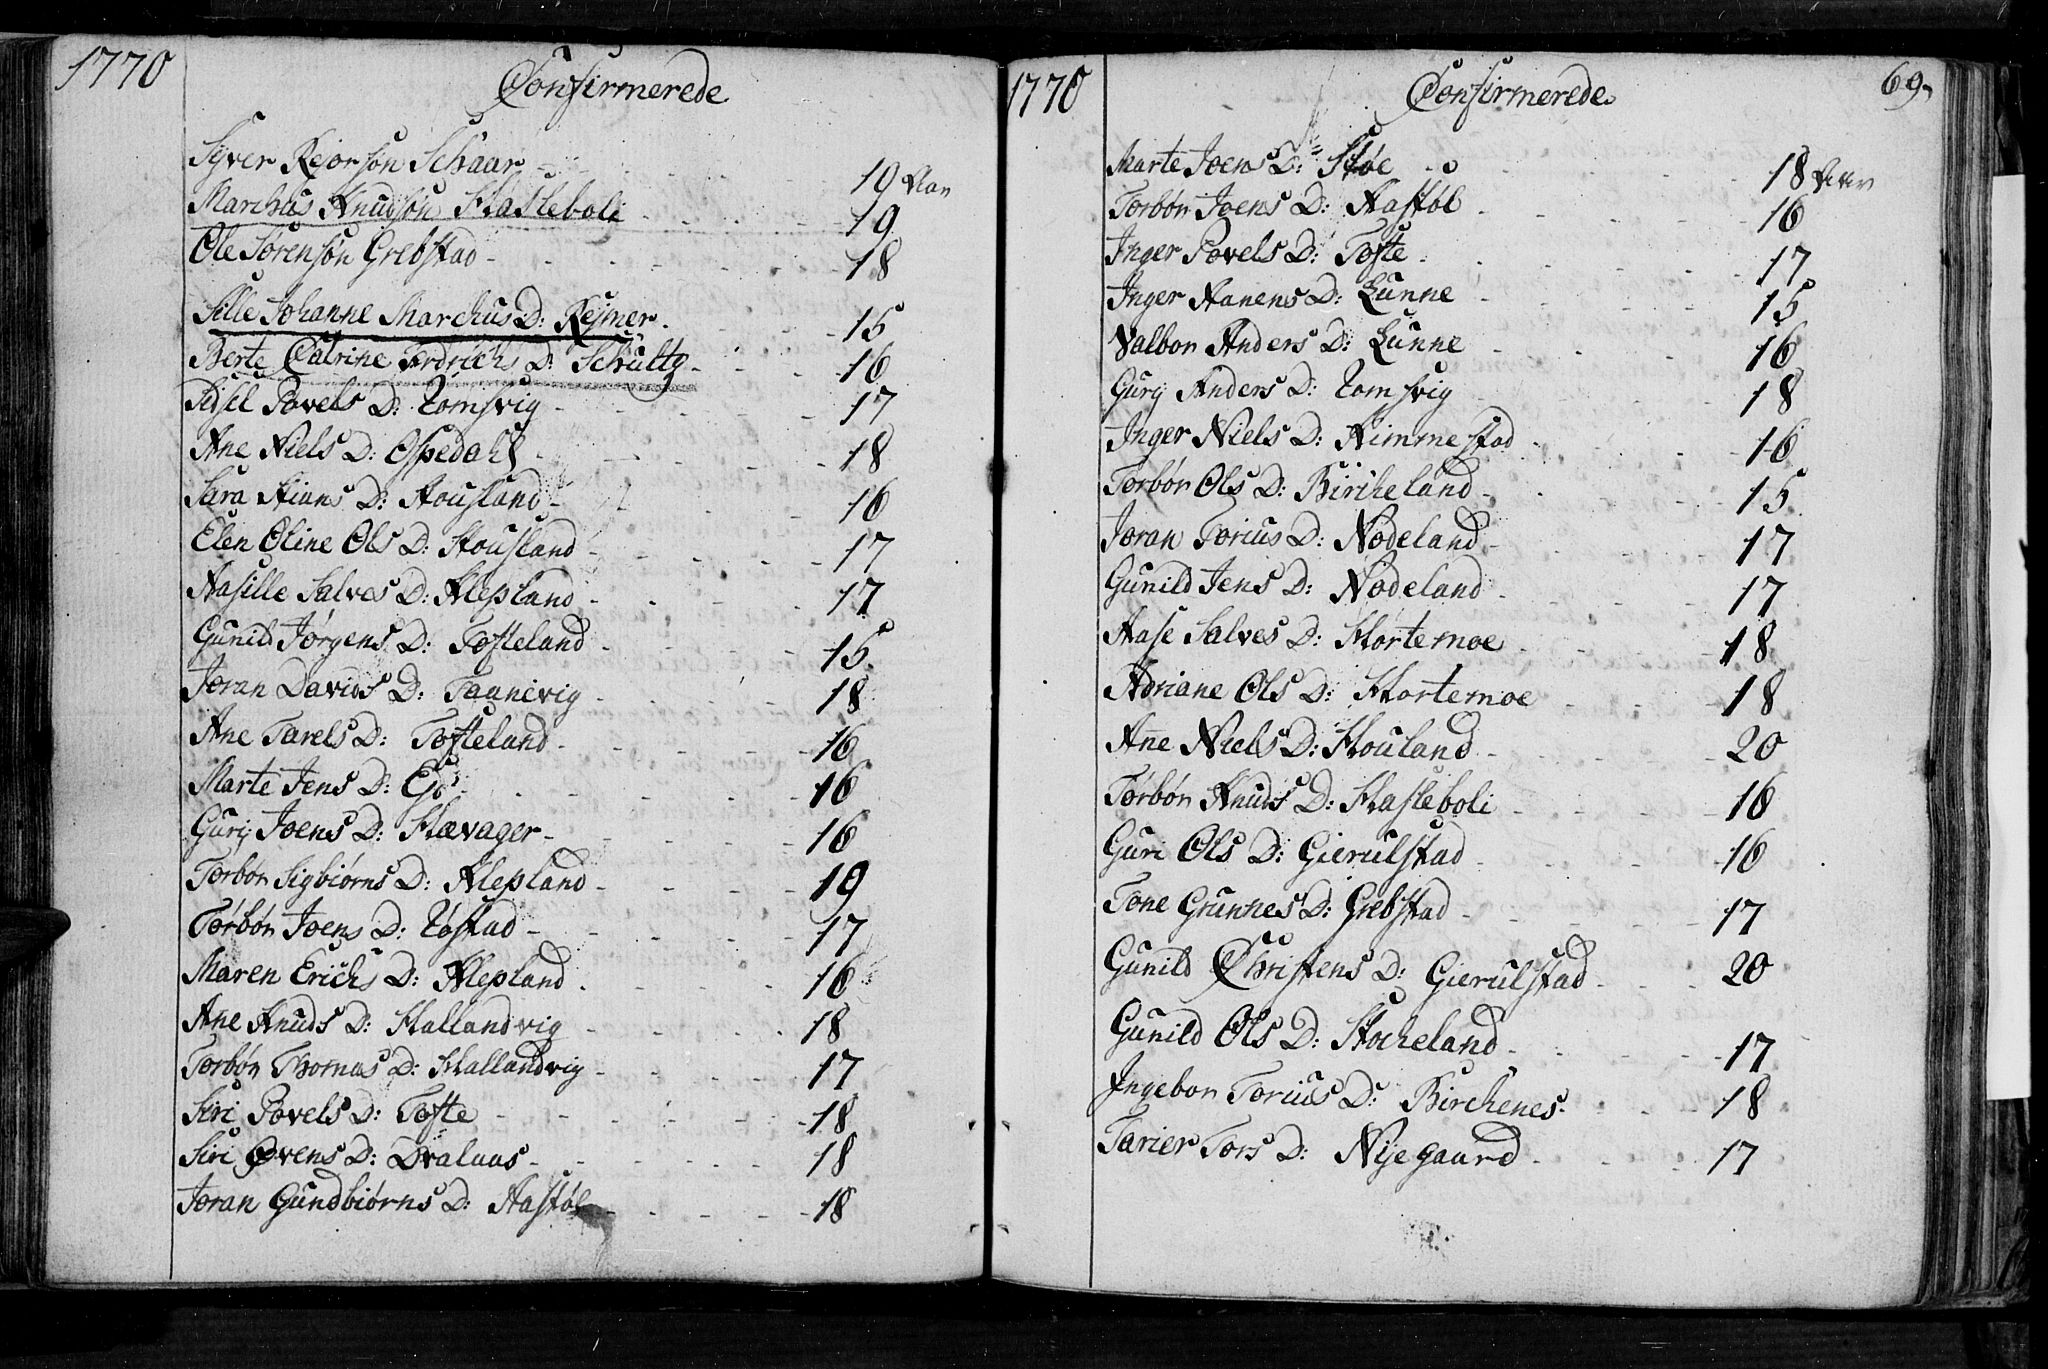 1770
Confirmerede
Syver Rejorsøn Schaar - 19 Aar
Marchus Knudsøn Hasleboli - 19
Ole Sørensøn Grebstad - 18
Sille Johanne Marchus D: Rejmer. 15
Berte Catrine Fredrichs D: Schultz - 16
Sidsel Povels D: Romsvig - 17
Ane Niels D: Ospedahl - 18
Sara Stians D: Stousland - 16
Elen Oline Ols D: Stousland - 17
Aasille Salves D: Klepland - 17
Gunild Jørgens D: Tofteland - 15
Joran Davids D: Taanevig - 18
Ane Tarels D: Tofteland - 16
Marte Jens D: Eje - 16
Guri Joens D: Hævager - 16
Torbør Sigbiørns D: Klepland - 19
Torbør Joens D: Røstad - 17
Maren Erichs D: Klepland - 16
Ane Knuds D: Hallandvig - 18
Torbør Thomas D: Hallandvig - 17
Siri Povels D: Tofte - 18
Siri Ovens D: Dvalaas - 18
Joran Gundbiørns D: Aastøl - 18
1770
Confirmerede
69
Marte Joens D: Støe - 18
Torbør Joens D: Aastøl - 16
Inger Povels D: Tofte - 17
Inger Hanens D: Lunne - 15
Valbor Anders D: Lunne - 16
Gury Anders D: Romsvig - 18
Inger Niels D: Kimmestad - 16
Torbør Ols D: Bircheland - 15
Joran Torius D: Nodeland - 17
Gunild Jens D: Nodeland - 17
Aase Salves D: Hortemoe - 18
Adriane Ols D: Hortemoe - 18
Ane Niels D: Houland - 20
Torbør Knuds D: Hasleboli - 16
Guri Ols D: Gierulstad - 16
Tone Gunnes D: Grebstad - 17
Gunild Christens D: Gierulstad - 20
Gunild Ols D: Stocheland - 17
Ingebor Torius D: Birchenes - 18
Tarier Tors D: Nijegaard - 17